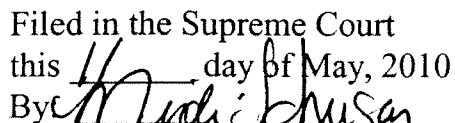 Filed in the Supreme Court
this 11 day of May, 2010
By